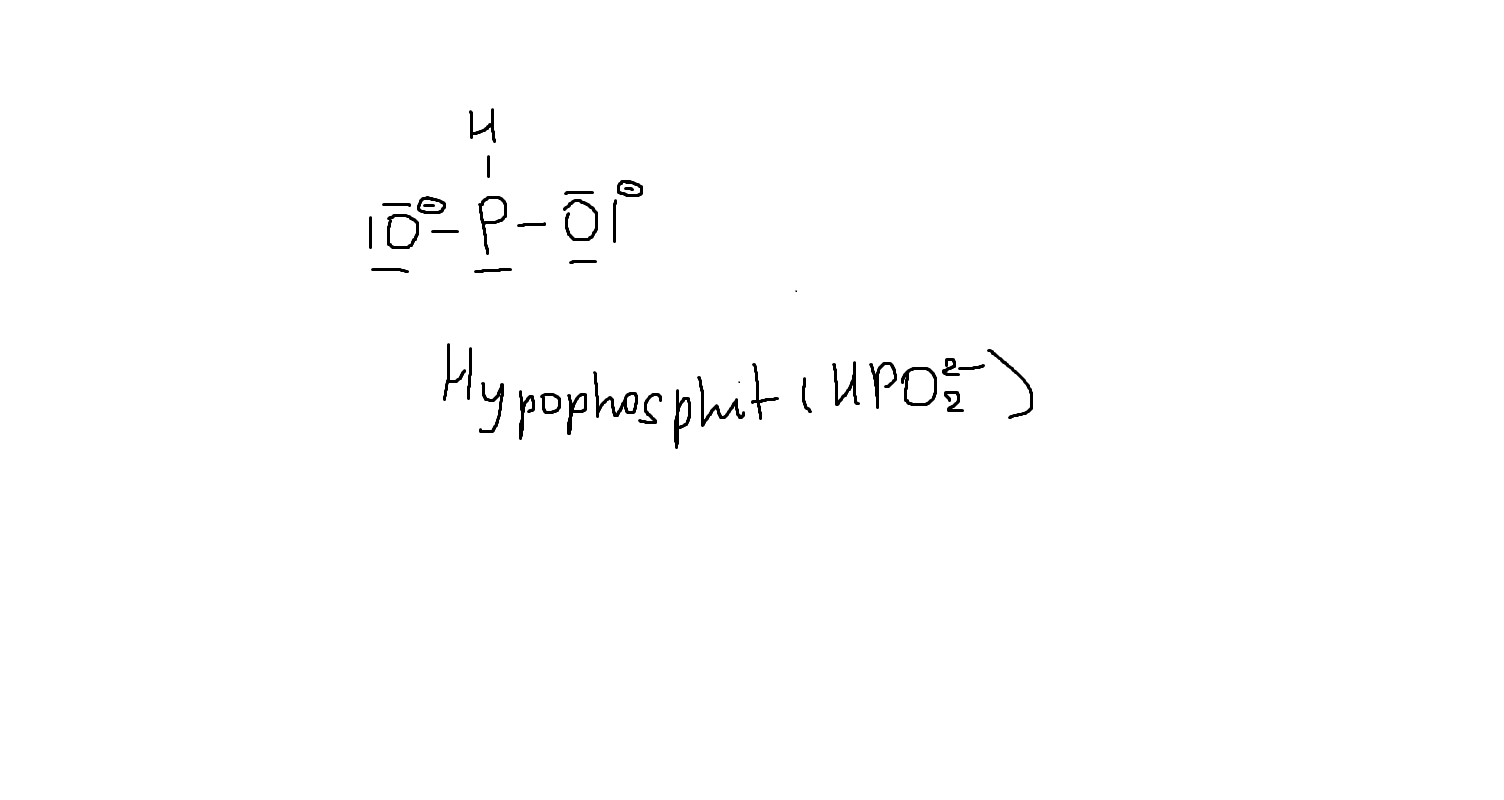 H
|O⊖–P–O|⊖
Hypophosphit (HPO₂²⁻)